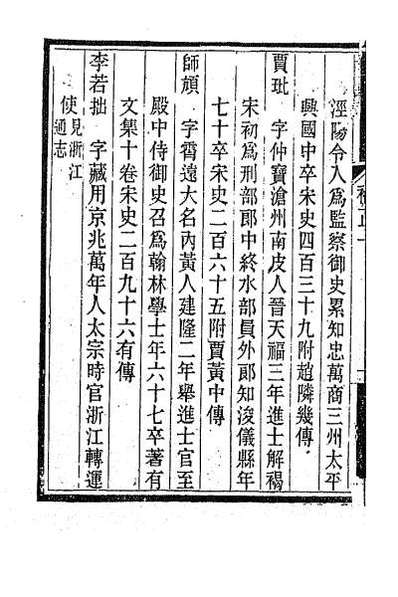 涇陽令入爲監察御史累知忠萬商三州太平
興國中卒宋史四百三十九附趙隣幾傳
賈玭　字仲寶滄州南皮人晉天福三年進士解褐
宋初爲刑部郎中終水部員外郎知浚儀縣年
七十卒宋史二百六十五附賈黃中傳
師頏　字霄遠大名內黃人建隆二年舉進士官至
殿中侍御史召爲翰林學士年六十七卒著有
文集十卷宋史二百九十六有傳
李若拙　字藏用京兆萬年人太宗時官浙江轉運
使見浙江
通志